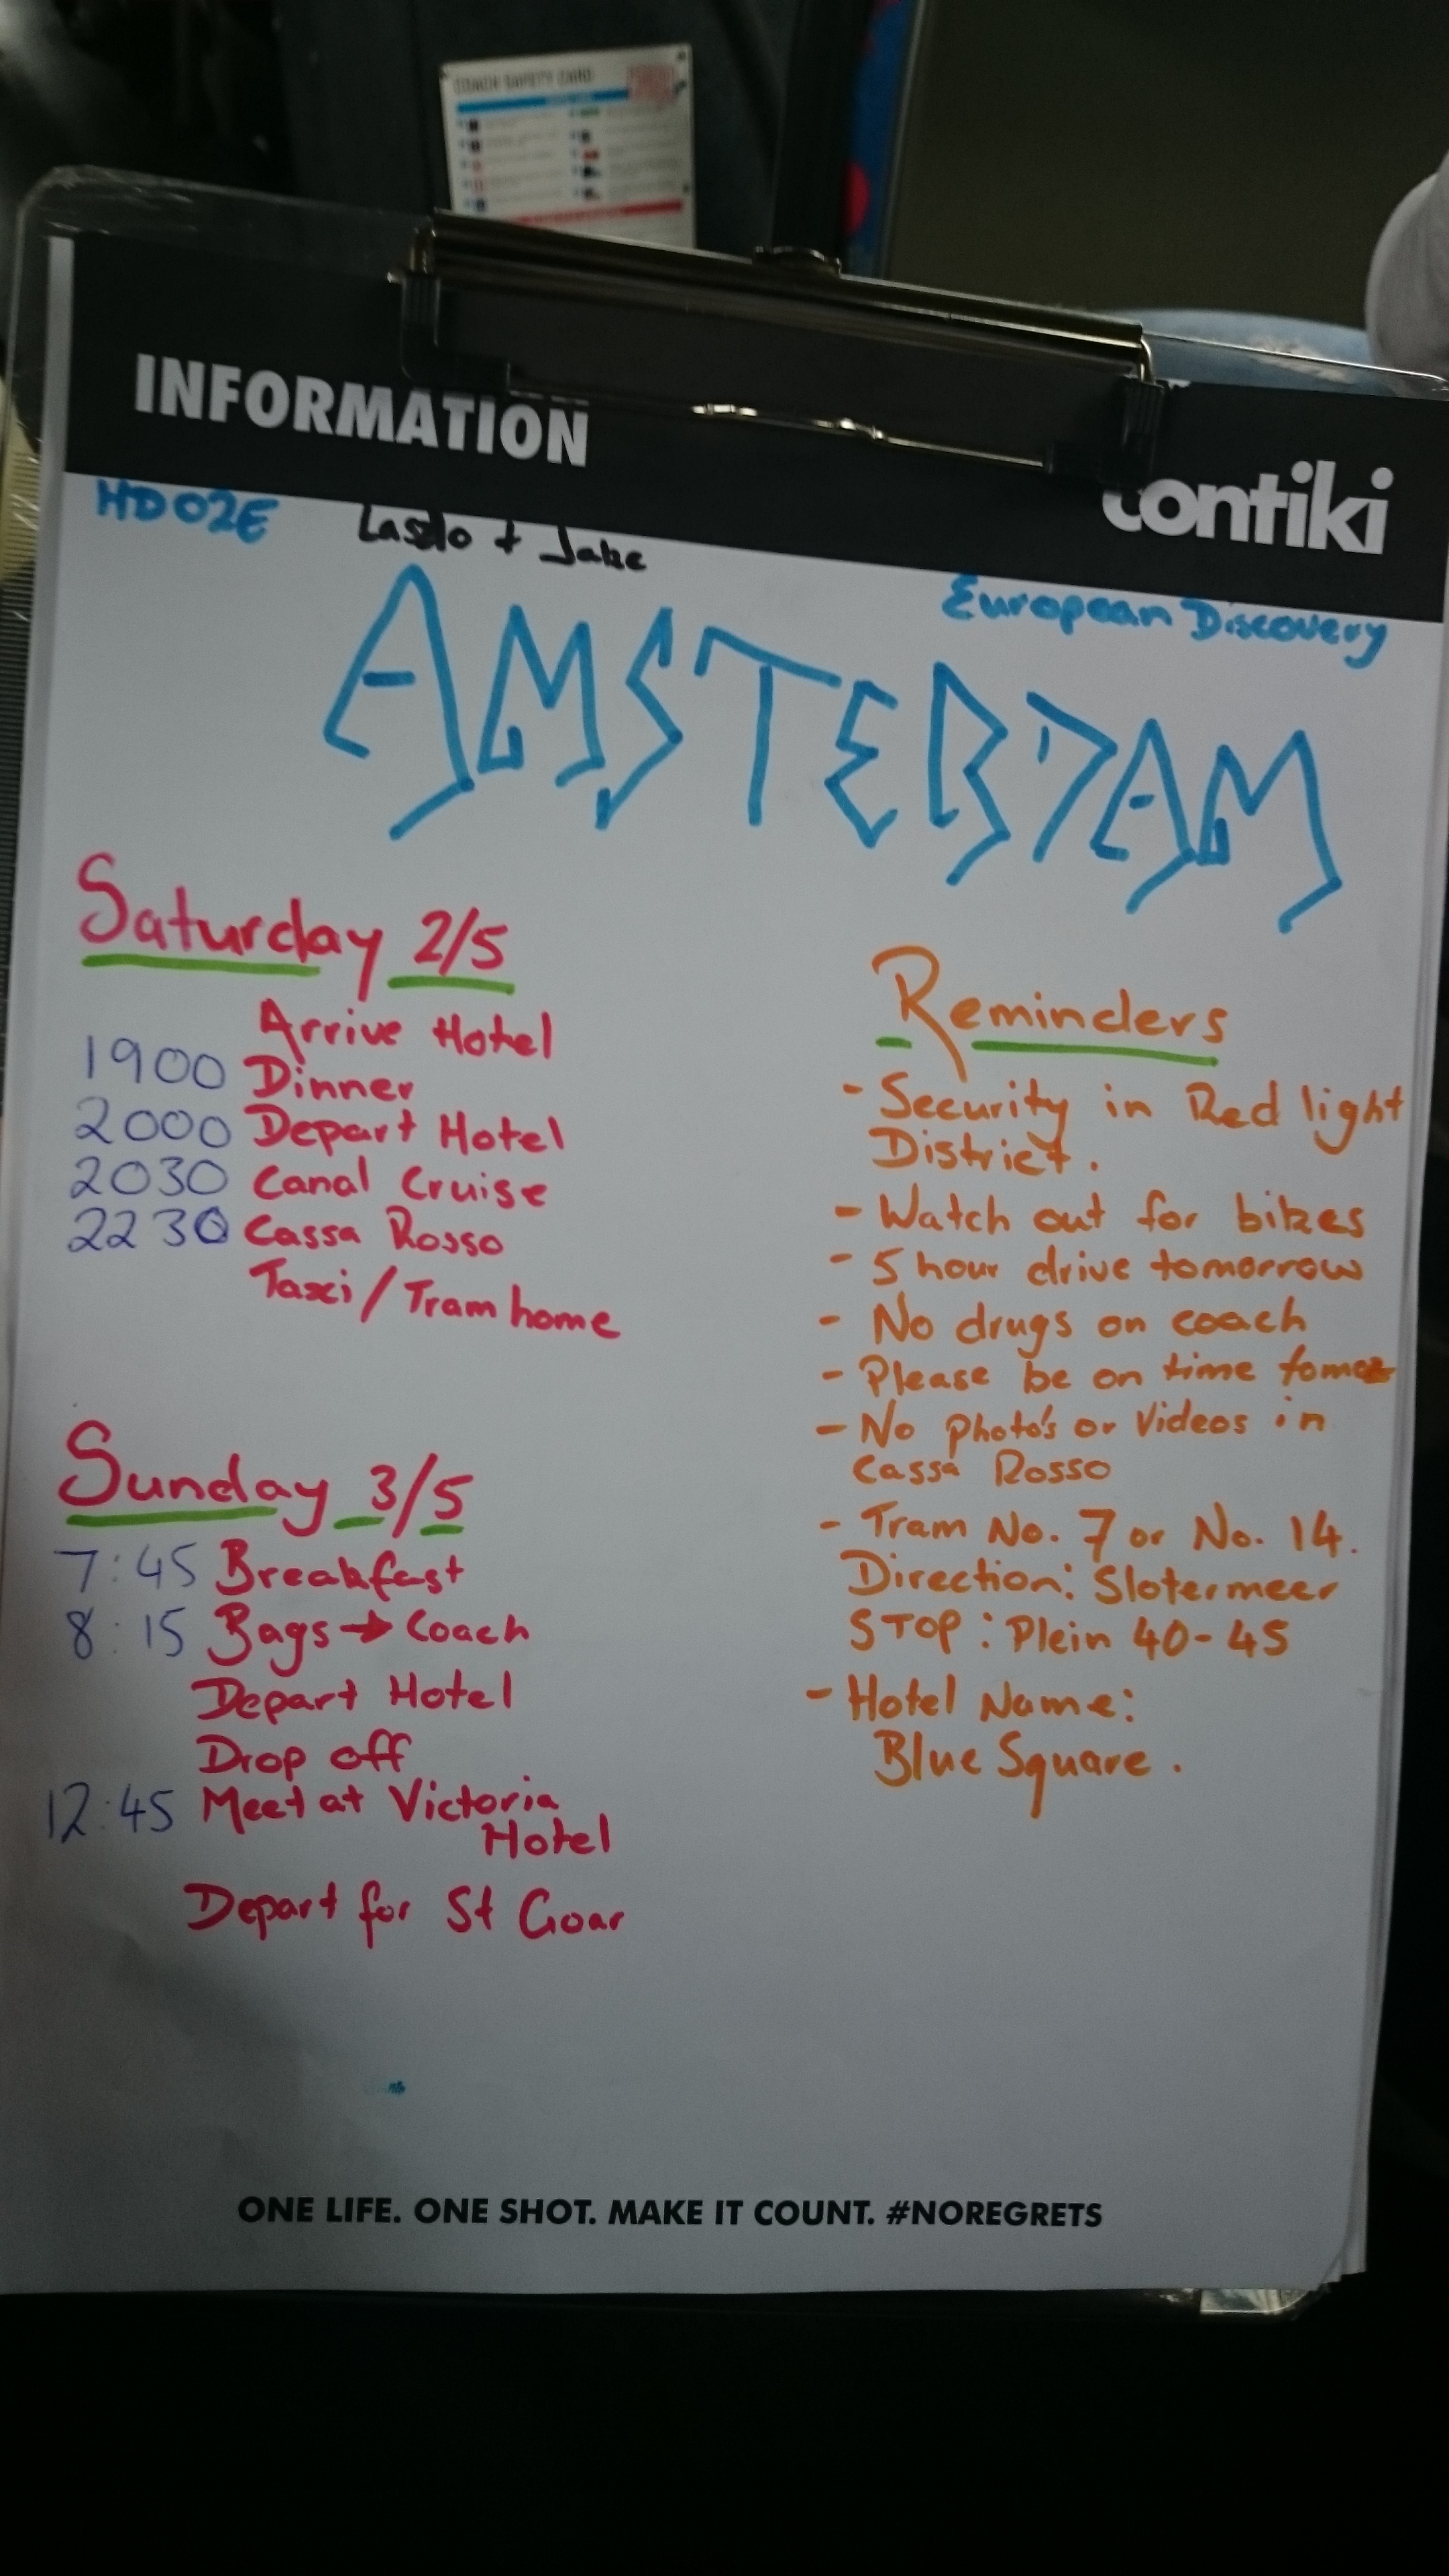 INFORMATION
contiki
HD02E
Laslo + Jake
European Discovery
AMSTERDAM
Saturday 2/5
Arrive Hotel
1900 Dinner
2000 Depart Hotel
2030 Canal Cruise
2230 Cassa Rosso
Taxi/Tram home
Sunday 3/5
7:45 Breakfast
8:15 Bags → Coach
Depart Hotel
Drop off
12:45 Meet at Victoria
Hotel
Depart for St Goar
Reminders
- Security in Red light
District.
- Watch out for bikes
- 5 hour drive tomorrow
- No drugs on coach
- Please be on time
- No photo's or videos in
Cassa Rosso
- Tram No. 7 or No. 14.
Direction: Slotermeer
STOP: Plein 40-45
- Hotel Name:
Blue Square.
ONE LIFE. ONE SHOT. MAKE IT COUNT. #NOREGRETS